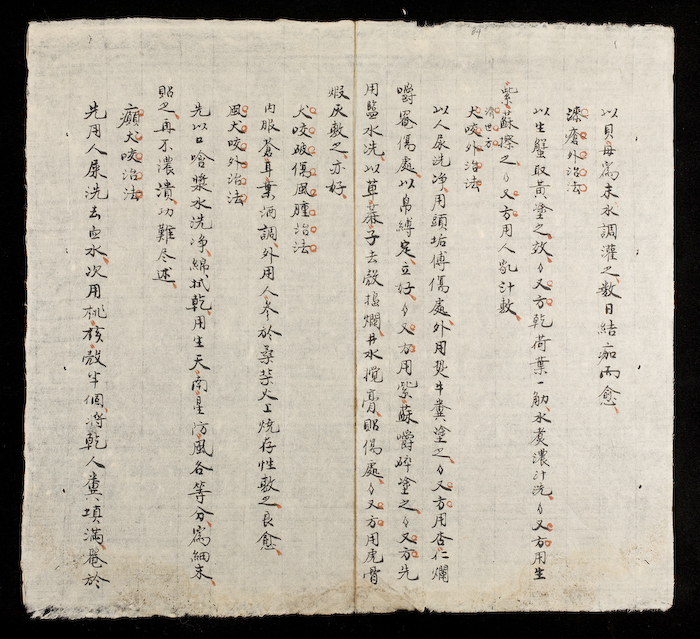 以貝母爲末水調灌之數日結痂而愈
漆瘡外治法
以生蟹取黃塗之效又方乾荷葉一觔水煮濃汁洗又方用生
紫蘇擦之又方用人乳汁敷
濟世方
犬咬外治法
以人尿洗净用頭垢傅傷處外用熱牛糞塗之又方用杏仁爛
嚼罨傷處以帛縛定立好又方用紫蘇嚼碎塗之又方先
用鹽水洗以萆麻子去殼搗爛井水攪膏貼傷處又方用虎骨
煅灰敷之亦好
犬咬破傷風腫治法
內服蒼耳葉酒調外用人參於桑柴火上燒存性敷之良愈
風犬咬外治法
先以口啥漿水洗净綿拭乾用生天南星防風各等分爲細末
貼之再不濃潰功難尽述
癲犬咬治法
先用人尿洗去血水次用桃核殼半個將乾人糞填滿罨於